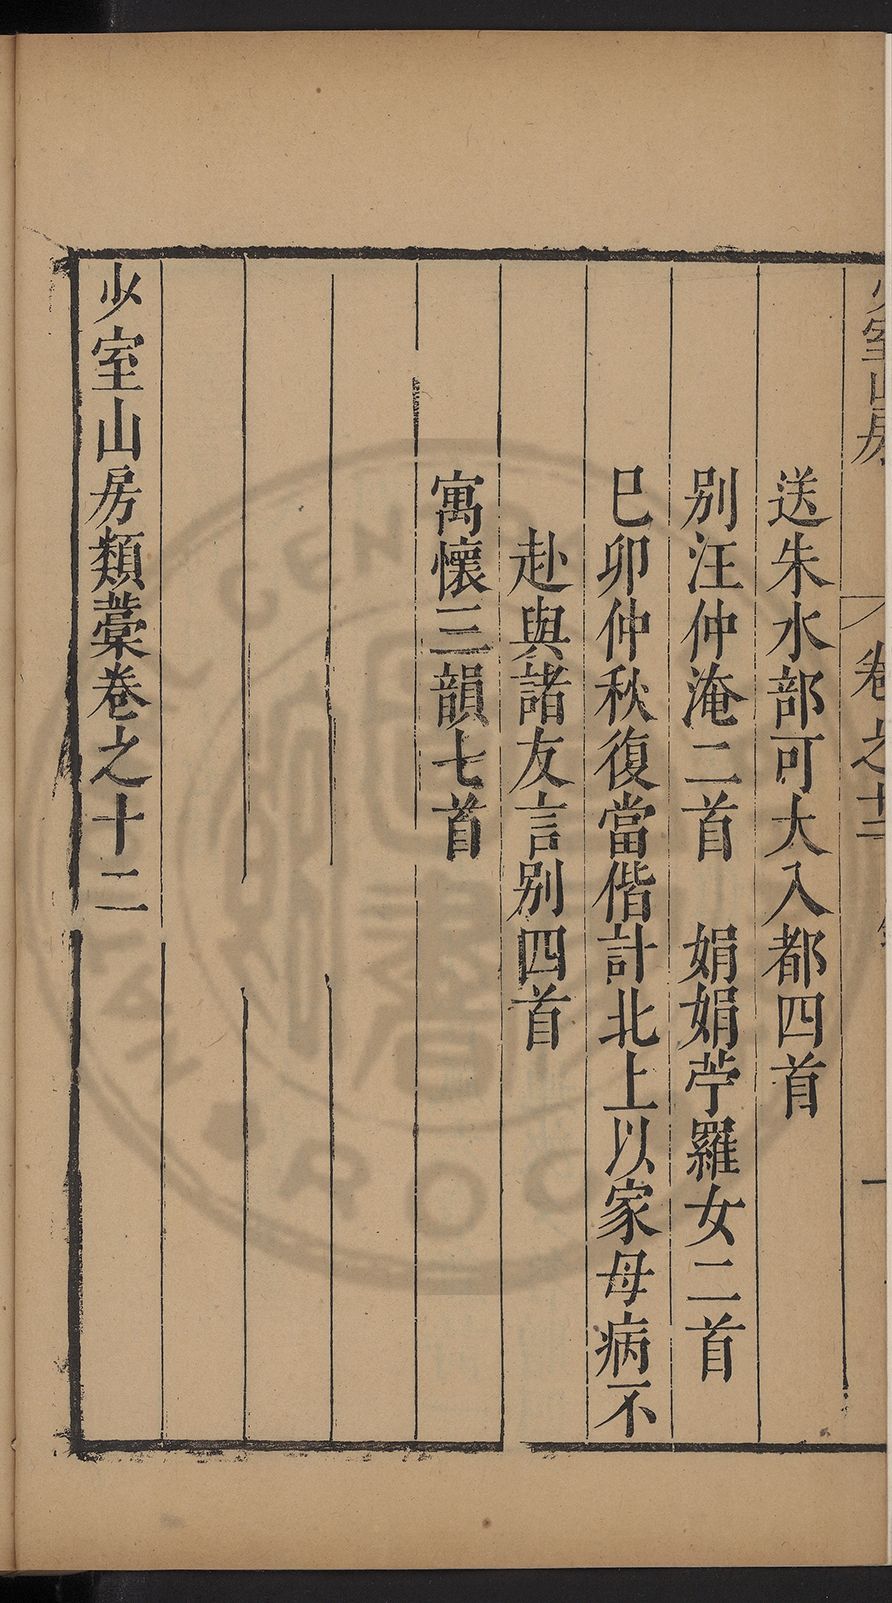 少室山房
卷之十二
一
送朱水部可大入都四首
別汪仲淹二首　娟娟苧羅女二首
巳卯仲秋復當偕計北上以家母病不
赴與諸友言別四首
寓懷三韻七首
少室山房類藁卷之十二